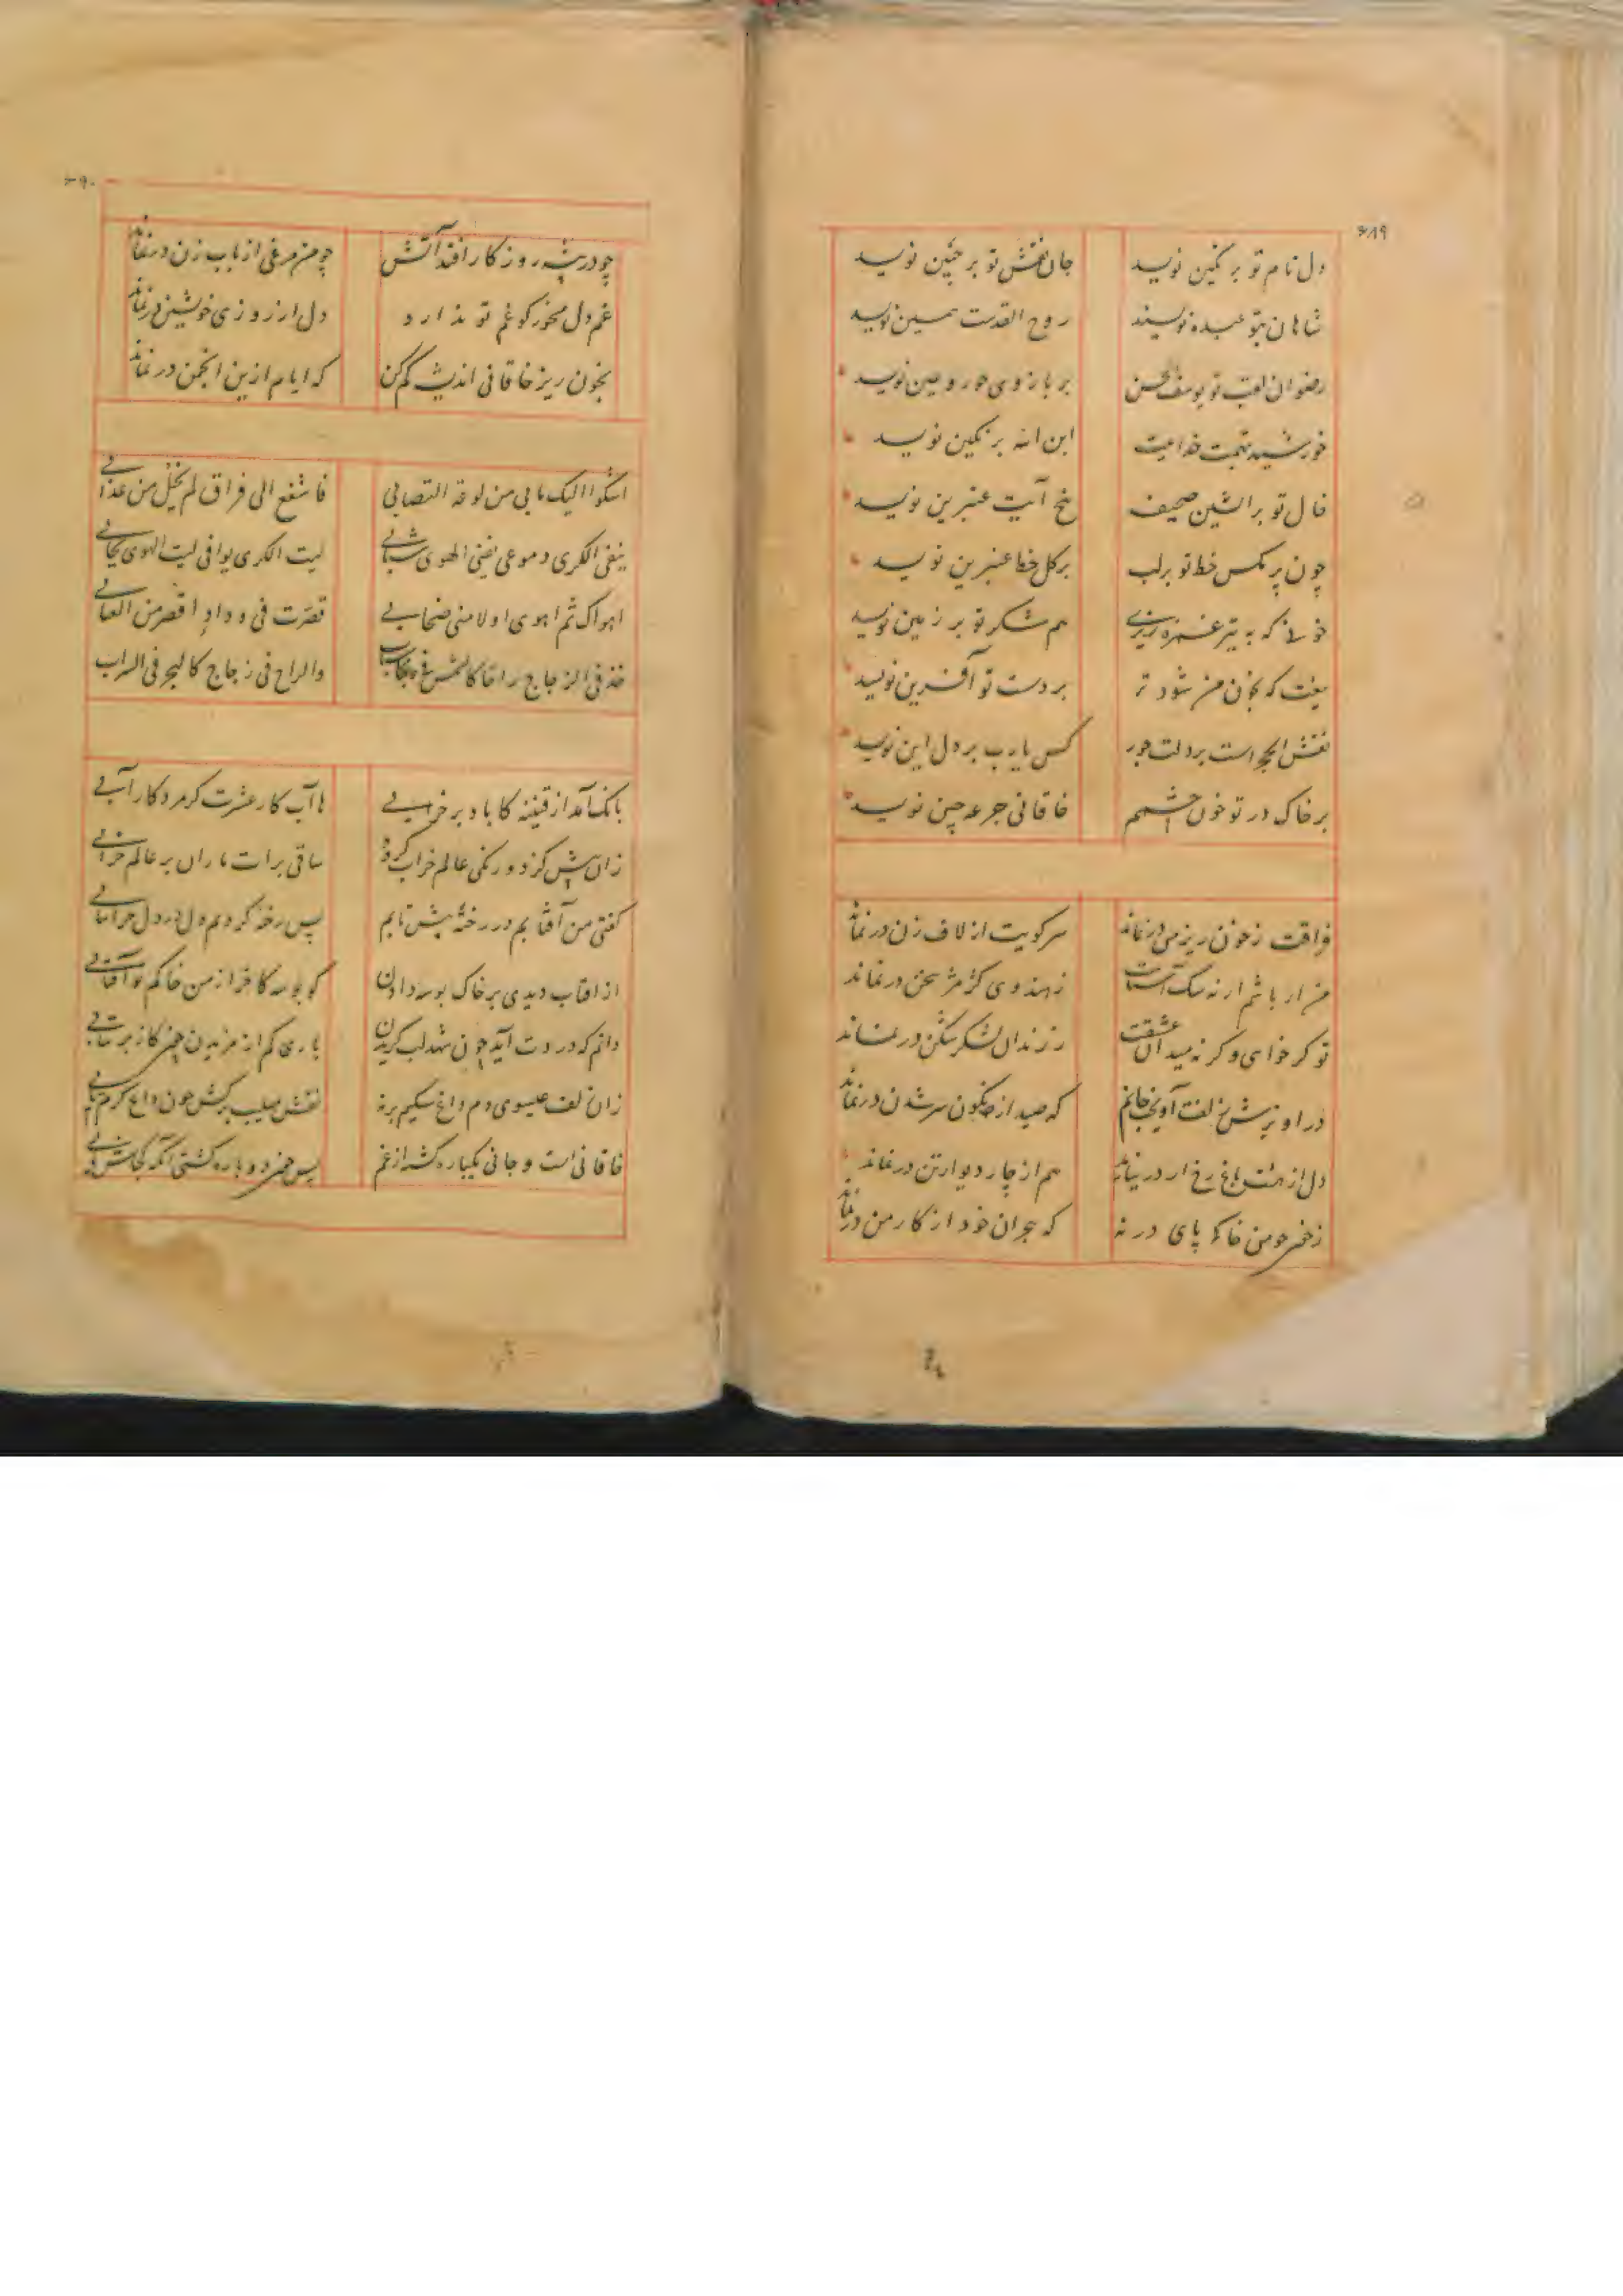 ۶۸۹
دل نام تو بر نگین نویسد جان نقش تو بر جبین نویسد
شاهان بتو عبده نویسند روح القدست همین نویسد
رضوان لقب تو یوسف الحسن بر بازوی حور و عین نویسد
خورشید بتهمت خدائیت ابن الله بر نگین نویسد
خال تو بر آتشین صحیفه نخ آیت عنبرین نویسد
چون پر مگس خط تو بر لب بر گل خط عنبرین نویسد
خونی که به تیر غمزه ریزی هم شکر تو بر زمین نویسد
تیغت که بخون من شود تر بر دست تو آفرین نویسد
نقش الحجر است بر دلت جور کس یارب بر دل این نویسد
بر خاک در تو خون چشمم خاقانی جرعه چین نویسد
فراقت ز خون ریز من در نماند سر کویت از لاف زن در نماند
من ار باشم ار نه سگ آستانت ز هندوی کژمژ سخن در نماند
تو گر خواهی و گر نه میدان عشقت ز زندان لشکر شکن در نماند
در آویزش زلفت آویخت جانم که صید از نگون سر شدن در نماند
دل از هشت باغ رخ ار در نیابد هم از چار دیوار تن در نماند
ز خصم چو من خاکپای در نه که هجران خود از کار من در نماند
۶۹۰
چو در بیشه روزگار افتد آتش چو من مرغی از باب زن در نماند
غم دل مخور کو غم تو ندارد دل از روزی خویشتن در نماند
بخون ریز خاقانی اندیشه کم کن که ایام ازین انجمن در نماند
اشکوا الیک ما بی من لوعة التصابی فاشفع الی فراق لم یخل من عذابی
ینفی الکری دموعی یفنی الهوی شبابی لیت الکری یوافی لیت الهوی یحابی
اهواک ثم اهوی اولا منی ضحابی قصرت فی وداد اقصر من العتابی
خذ فی الزجاج راحا کالشمس فی حجاب والراح فی زجاج کالبحر فی السراب
بانگ آمد از قنینه کاباد بر خرابی ها آب کار عشرت گر مرد کار آبی
زان پیش کز دو رنگی عالم خراب گردد ساقی برات ما ران بر عالم خرابی
گفتی من آفتابم در رخنه بیش تابم پس رخنه کردیم دل در دل چرا نتابی
از آفتاب دیدی بر خاک بوسه دادن گو بوسه کاخر از من خاکم تو آفتابی
دانم که دردت آید چون شهد لب گزیدن باری کم از مزیدن چون گاز بر نتابی
زان زلف عیسوی دم داغ سگیم بر نه نقش صلیب برکش چون داغ گرم تابی
خاقانی است و جانی یکباره کشته از غم پس چون دوباره کشتی آنگه کجاش یابی